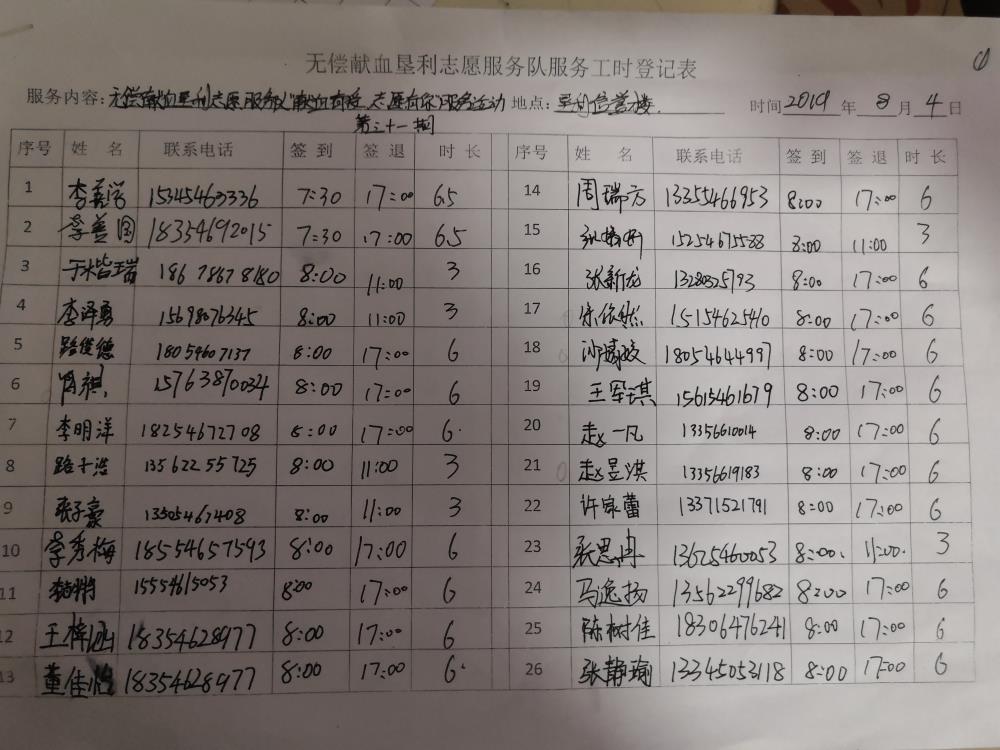 无偿献血垦利志愿服务队服务工时登记表
服务内容: 无偿献血垦利志愿服务队"献血有爱 志愿有你"服务活动 地点: 垦利信誉楼 时间 2019 年 8 月 4 日
第三十一期
序号 姓 名 联系电话 签 到 签 退 时 长 序号 姓 名 联系电话 签 到 签 退 时 长
1 李善学 15345463336 7:30 17:00 6.5 14 周瑞方 13355466953 8:00 17:00 6
2 李善国 18354692015 7:30 17:00 6.5 15 15254675588 8:00 11:00 3
3 于楷瑞 18678678180 8:00 11:00 3 16 张新龙 13280325793 8:00 17:00 6
4 李泽勇 15698076345 8:00 11:00 3 17 宋依然 15154625410 8:00 17:00 6
5 路俊德 18054607137 8:00 17:00 6 18 18054644997 8:00 17:00 6
6 肖祺 15763870034 8:00 17:00 6 19 王军琪 15615461679 8:00 17:00 6
7 李明洋 18254672708 8:00 17:00 6 20 赵一凡 13356610014 8:00 17:00 6
8 路子浩 13562255725 8:00 11:00 3 21 赵昱淇 13356619183 8:00 17:00 6
9 张子豪 13505467408 8:00 11:00 3 22 许家蕾 13371521791 8:00 17:00 6
10 李秀梅 18554657593 8:00 17:00 6 23 张思冉 13625460053 8:00 11:00 3
11 15554615053 8:00 17:00 6 24 马逸扬 13562299682 8:00 17:00 6
12 王梓涵 18354628977 8:00 17:00 6 25 陈树佳 18306476241 8:00 17:00 6
13 董佳怡 18354628977 8:00 17:00 6 26 张静瑜 13345053118 8:00 17:00 6